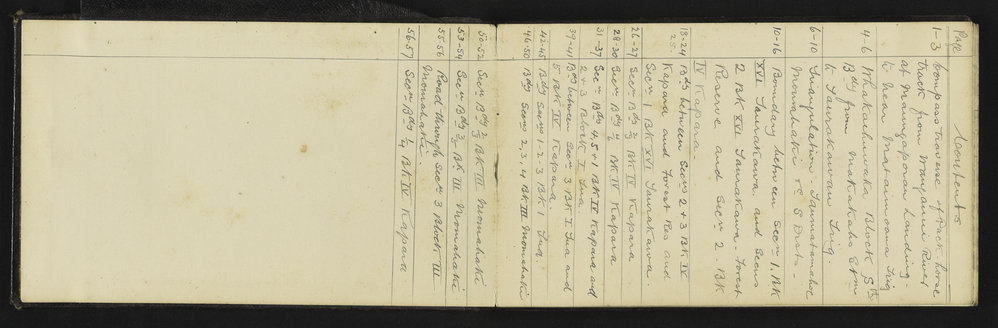 Contents
Page
1-3 Compass traverse of Pack horse
track from Wanganui River
at Maungaporau Landing
to near Mataimoana Trig
4-6 Whakaihuwaka Block Bdy
Bdy from Makakaho Stm
to Taurakawau Trig.
6-10 Triangulation Taumatamahoe
Momahaki &c S Dist.
10-16 Boundary between Secn 1. Bk
XVI Taurakawa and Secns
2 BK XVI Taurakawa. Forest
Reserve and Secn 2. BK
IV Kapara.
18-24 Bdy between Secns 2 + 3 BK IV
25- Kapara and Forest Res and
Secn 1 BK XVI Taurakawa.
26-27 Secn Bdy 2/3 BK IV Kapara
28-30 Secn Bdy BK IV Kapara
31-37 Secn Bdy 4.5 + 1 BK IV Kapara and
2 + 3 Block I Tua.
39-41 Bdy between Secn 3 BK I Tua and
5 BK IV Kapara.
42-45 Bdy Secns 1-2.3 BK I Tua
46-50 Bdy Secns 2.3.4 BK III Momahaki
50-52 Secn Bdy 2/3 BK III Momahaki
53-54 Secn Bdy BK III Momahaki
55-56 Road through Secn 3 Block III
Momahaki.
56-57 Secn Bdy BK IV Kapara